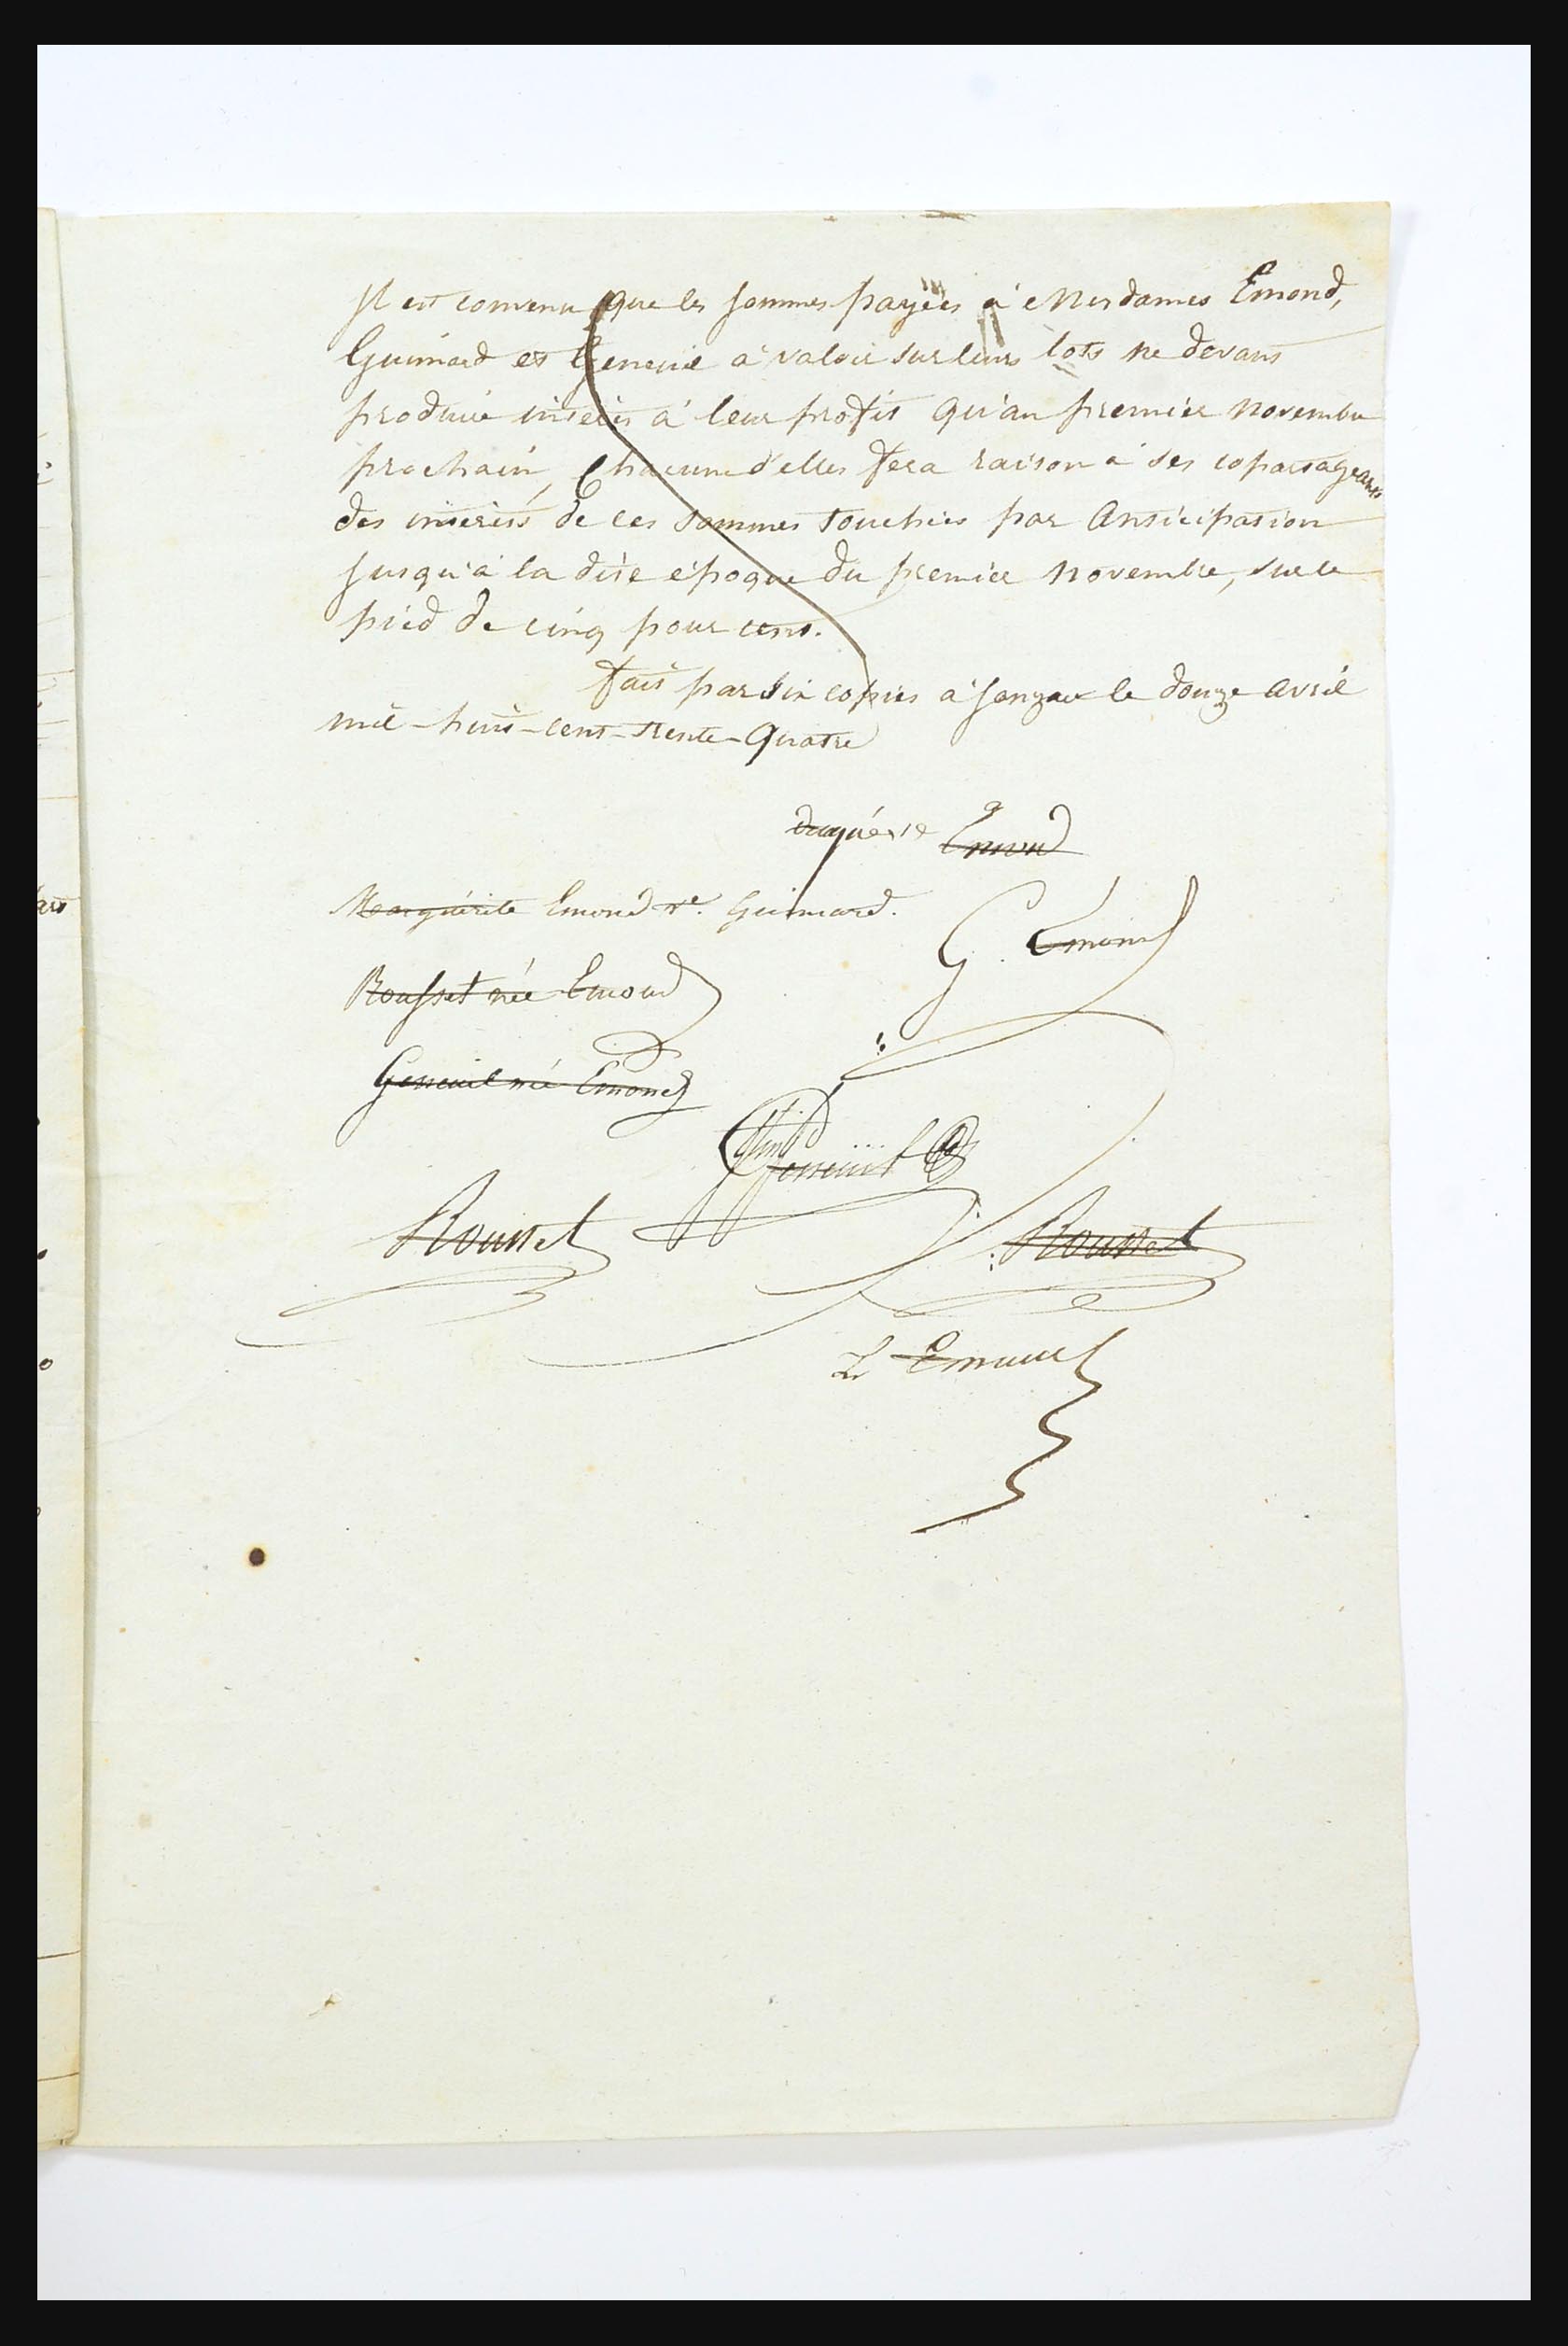 Il est convenu que les sommes payées à Mesdames Emond,
Guimard et Geneuil à valoir sur leurs lots ne devant
produire intérêts à leur profit qu'au premier novembre
prochain, Chacune d'elles fera raison à ses copartageants
des intérêts de ces sommes touchées par anticipation
jusqu'à la dite époque du premier novembre, sur le
pied de cinq pour cent.
fait par six copies à Jonzac le douze avril
mil-huit-cent-trente-quatre
Emond
Marguérite Emond Ve. Guimard.
G. Emond
Rousset née Emond
Geneuil née Emond
Geneuil
Rousset
Rousset